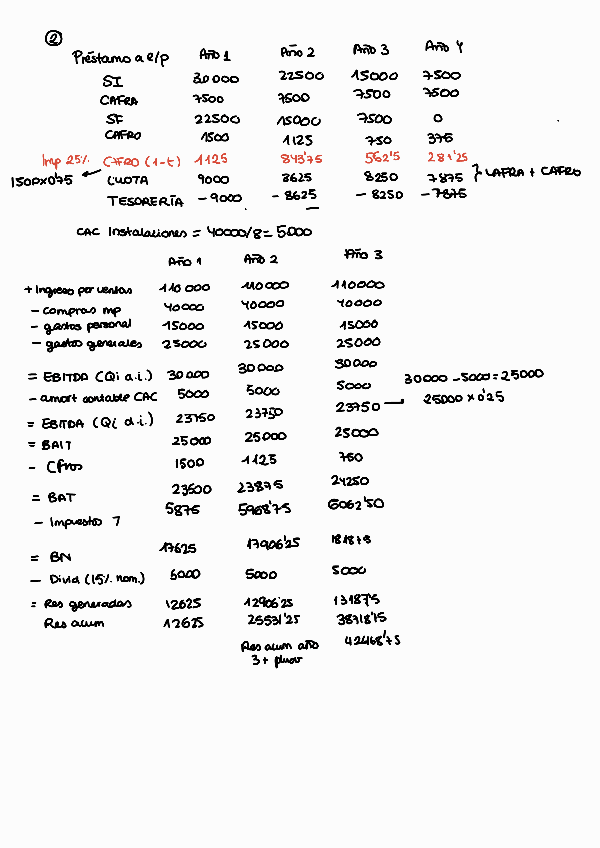 2
Préstamo a e/p Año 1 Año 2 Año 3 Año 4
SI 30000 22500 15000 7500
CAFRA 7500 7500 7500 7500
SF 22500 15000 7500 0
CAFRO 1500 1125 750 375
Imp 25% CAFRO (1-t) 1125 843'75 562'5 281'25
1500x0'75 CUOTA 9000 8625 8250 7875 } CAFRA + CAFRO
TESORERÍA -9000 -8625 -8250 -7875
CAC Instalaciones = 40000/8 = 5000
Año 1 Año 2 Año 3
+ Ingreso por ventas 110000 110000 110000
- compras mp 40000 40000 40000
- gastos personal 15000 15000 15000
- gastos generales 25000 25000 25000
= EBITDA (Qi a.i.) 30000 30000 30000 30000 - 5000 = 25000
- amort contable CAC 5000 5000 5000
= EBITDA (Qi d.i.) 23750 23750 23750 25000 x 0'25
= BAIT 25000 25000 25000
- Cfros 1500 1125 750
= BAT 23500 23875 24250
- Impuestos 7 5875 5968'75 6062'50
= BN 17625 17906'25 18187'5
- Divid (15% nom.) 5000 5000 5000
= Res generadas 12625 12906'25 13187'5
Res acum 12625 25531'25 38718'75
Res acum año 42468'75
3 + plusv